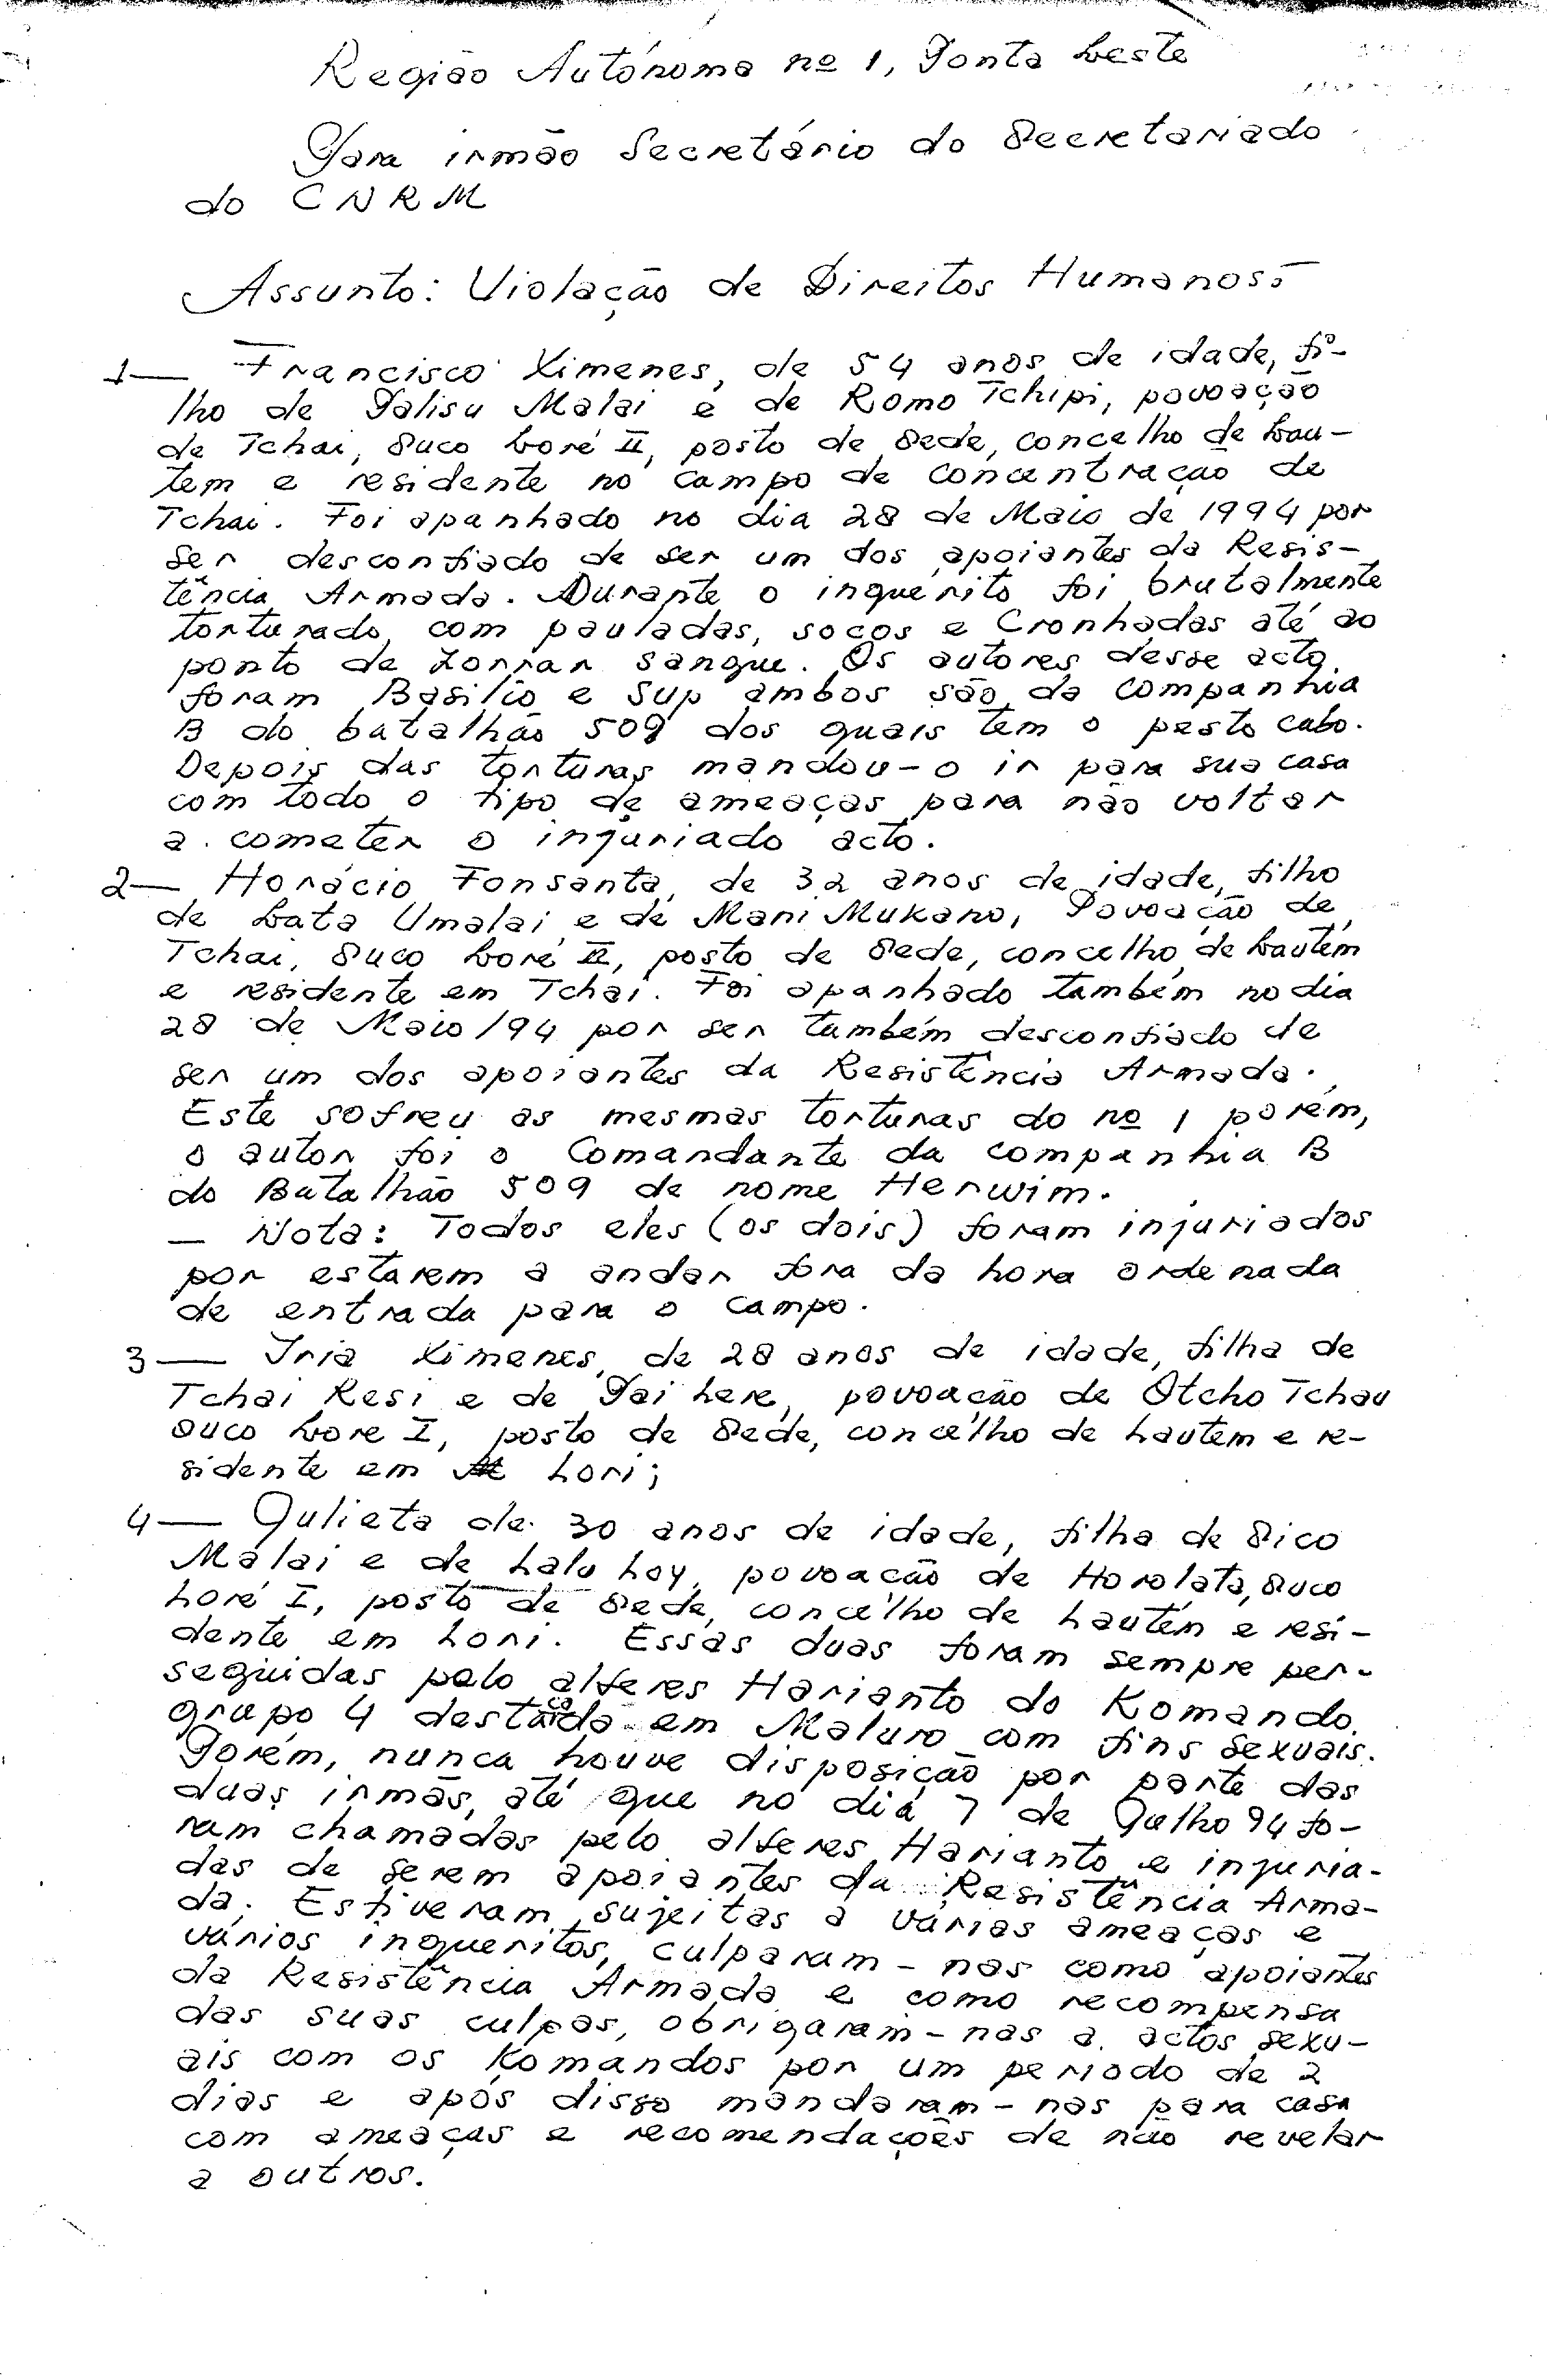 Região Autónoma nº 1, Ponta Leste
Para irmão Secretário do Secretariado
do CNRM
Assunto: Violação de Direitos Humanos:
1— Francisco Ximenes, de 54 anos de idade, fi-
lho de Palisu Malai e de Romo Tchipi, povoação
de Tchai, Suco Loré II, posto de Sede, concelho de Lau-
tem e residente no campo de concentração de
Tchai. Foi apanhado no dia 28 de Maio de 1994 por
ser desconfiado de ser um dos apoiantes da Resis-
tência Armada. Durante o inquérito foi brutalmente
torturado, com pauladas, socos e Cronhadas até ao
ponto de Zorrar sangue. Os autores desse acto
foram Basilio e Sup ambos são da companhia
B do batalhão 509 dos quais tem o posto cabo.
Depois das torturas mandou-o ir para sua casa
com todo o tipo de ameaças para não voltar
a cometer o injuriado acto.
2— Horácio Fonsanta, de 32 anos de idade, filho
de Lata Umalai e de Mani Mukano, Povoação de
Tchai, Suco Loré II, posto de Sede, concelho de Lautém
e residente em Tchai. Foi apanhado também no dia
28 de Maio/94 por ser também desconfiado de
ser um dos apoiantes da Resistência Armada.
Este sofreu as mesmas torturas do nº 1 porém,
o autor foi o Comandante da companhia B
do Batalhão 509 de nome Herwim.
— Nota: Todos eles (os dois) foram injuriados
por estarem a andar fora da hora ordenada
de entrada para o campo.
3— Iria Ximenes, de 28 anos de idade, filha de
Tchai Resi e de Pai Lere, povoação de Otcho Tchau
Suco Lore I, posto de Sede, concelho de Lautem e re-
sidente em Lori;
4— Julieta de 30 anos de idade, filha de Sico
Malai e de Lalu Loy, povoacão de Horolata, Suco
Loré I, posto de Sede, concelho de Lautém e resi-
dente em Lori. Essas duas foram sempre per-
seguidas pelo alferes Harianto do Komando
grupo 4 destacada em Maluro com fins sexuais.
Porém, nunca houve disposição por parte das
duas irmãs, até que no dia 7 de Julho 94 fo-
ram chamadas pelo alferes Harianto e injuria-
das de serem apoiantes da Resistência Arma-
da. Estiveram sujeitas a várias ameaças e
vários inqueritos, culparam-nas como apoiantes
da Resistência Armada e como recompensa
das suas culpas, obrigaram-nas a actos sexu-
ais com os Komandos por um periodo de 2
dias e após disso mandaram-nas para casa
com ameaças e recomendações de não revelar
a outros.